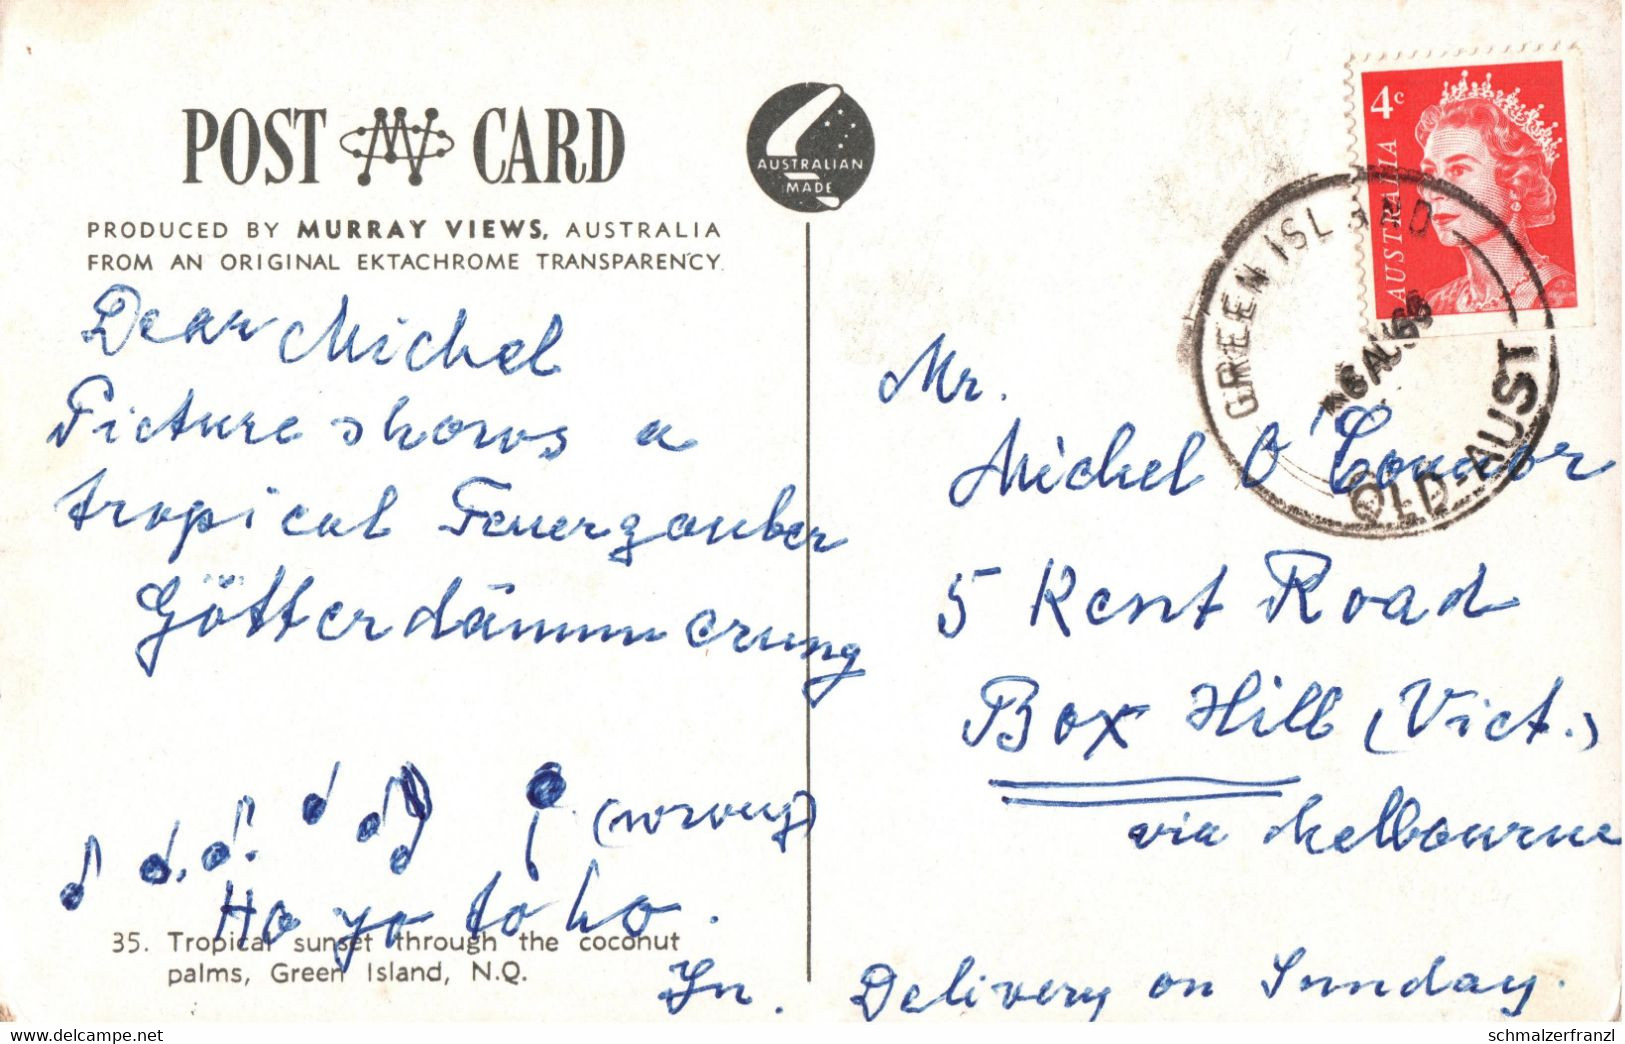 POST CARD
AUSTRALIAN
MADE
PRODUCED BY MURRAY VIEWS, AUSTRALIA
FROM AN ORIGINAL EKTACHROME TRANSPARENCY
Dear Michel
Picture shows a
tropical Feuerzauber
Götterdämmerung
(wrong)
Ho yo to ho .
35. Tropical sunset through the coconut
palms, Green Island, N.Q.
4c
AUSTRALIA
GREEN ISLAND
AU 68
QLD-AUST
Mr.
Michel O'Connor
5 Kent Road
Box Hill (Vict.)
via Melbourne
Delivery on Sunday.
delcampe.net
schmalzerfranzl